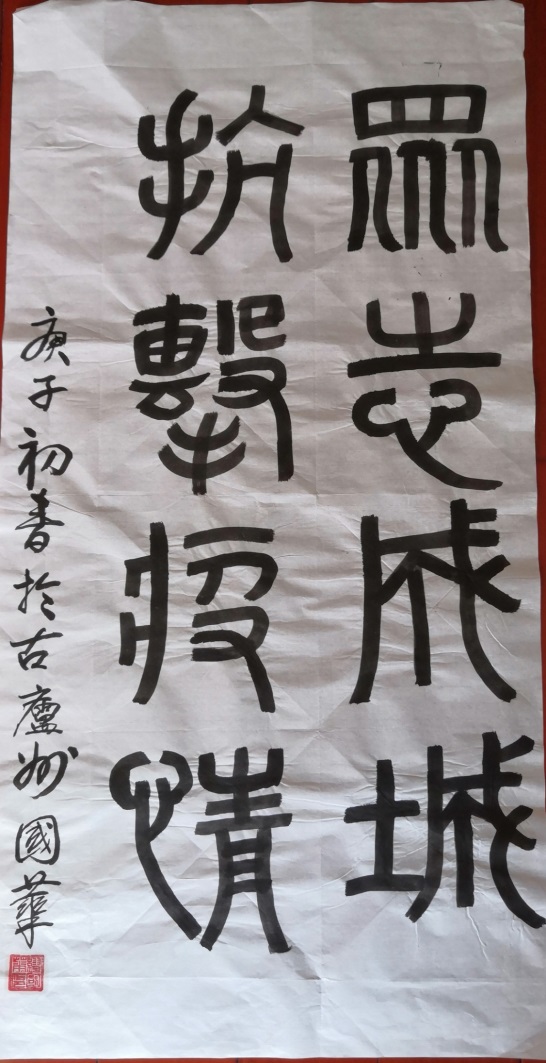 眾志成城
抗擊疫情
庚子初春於古廬州國華